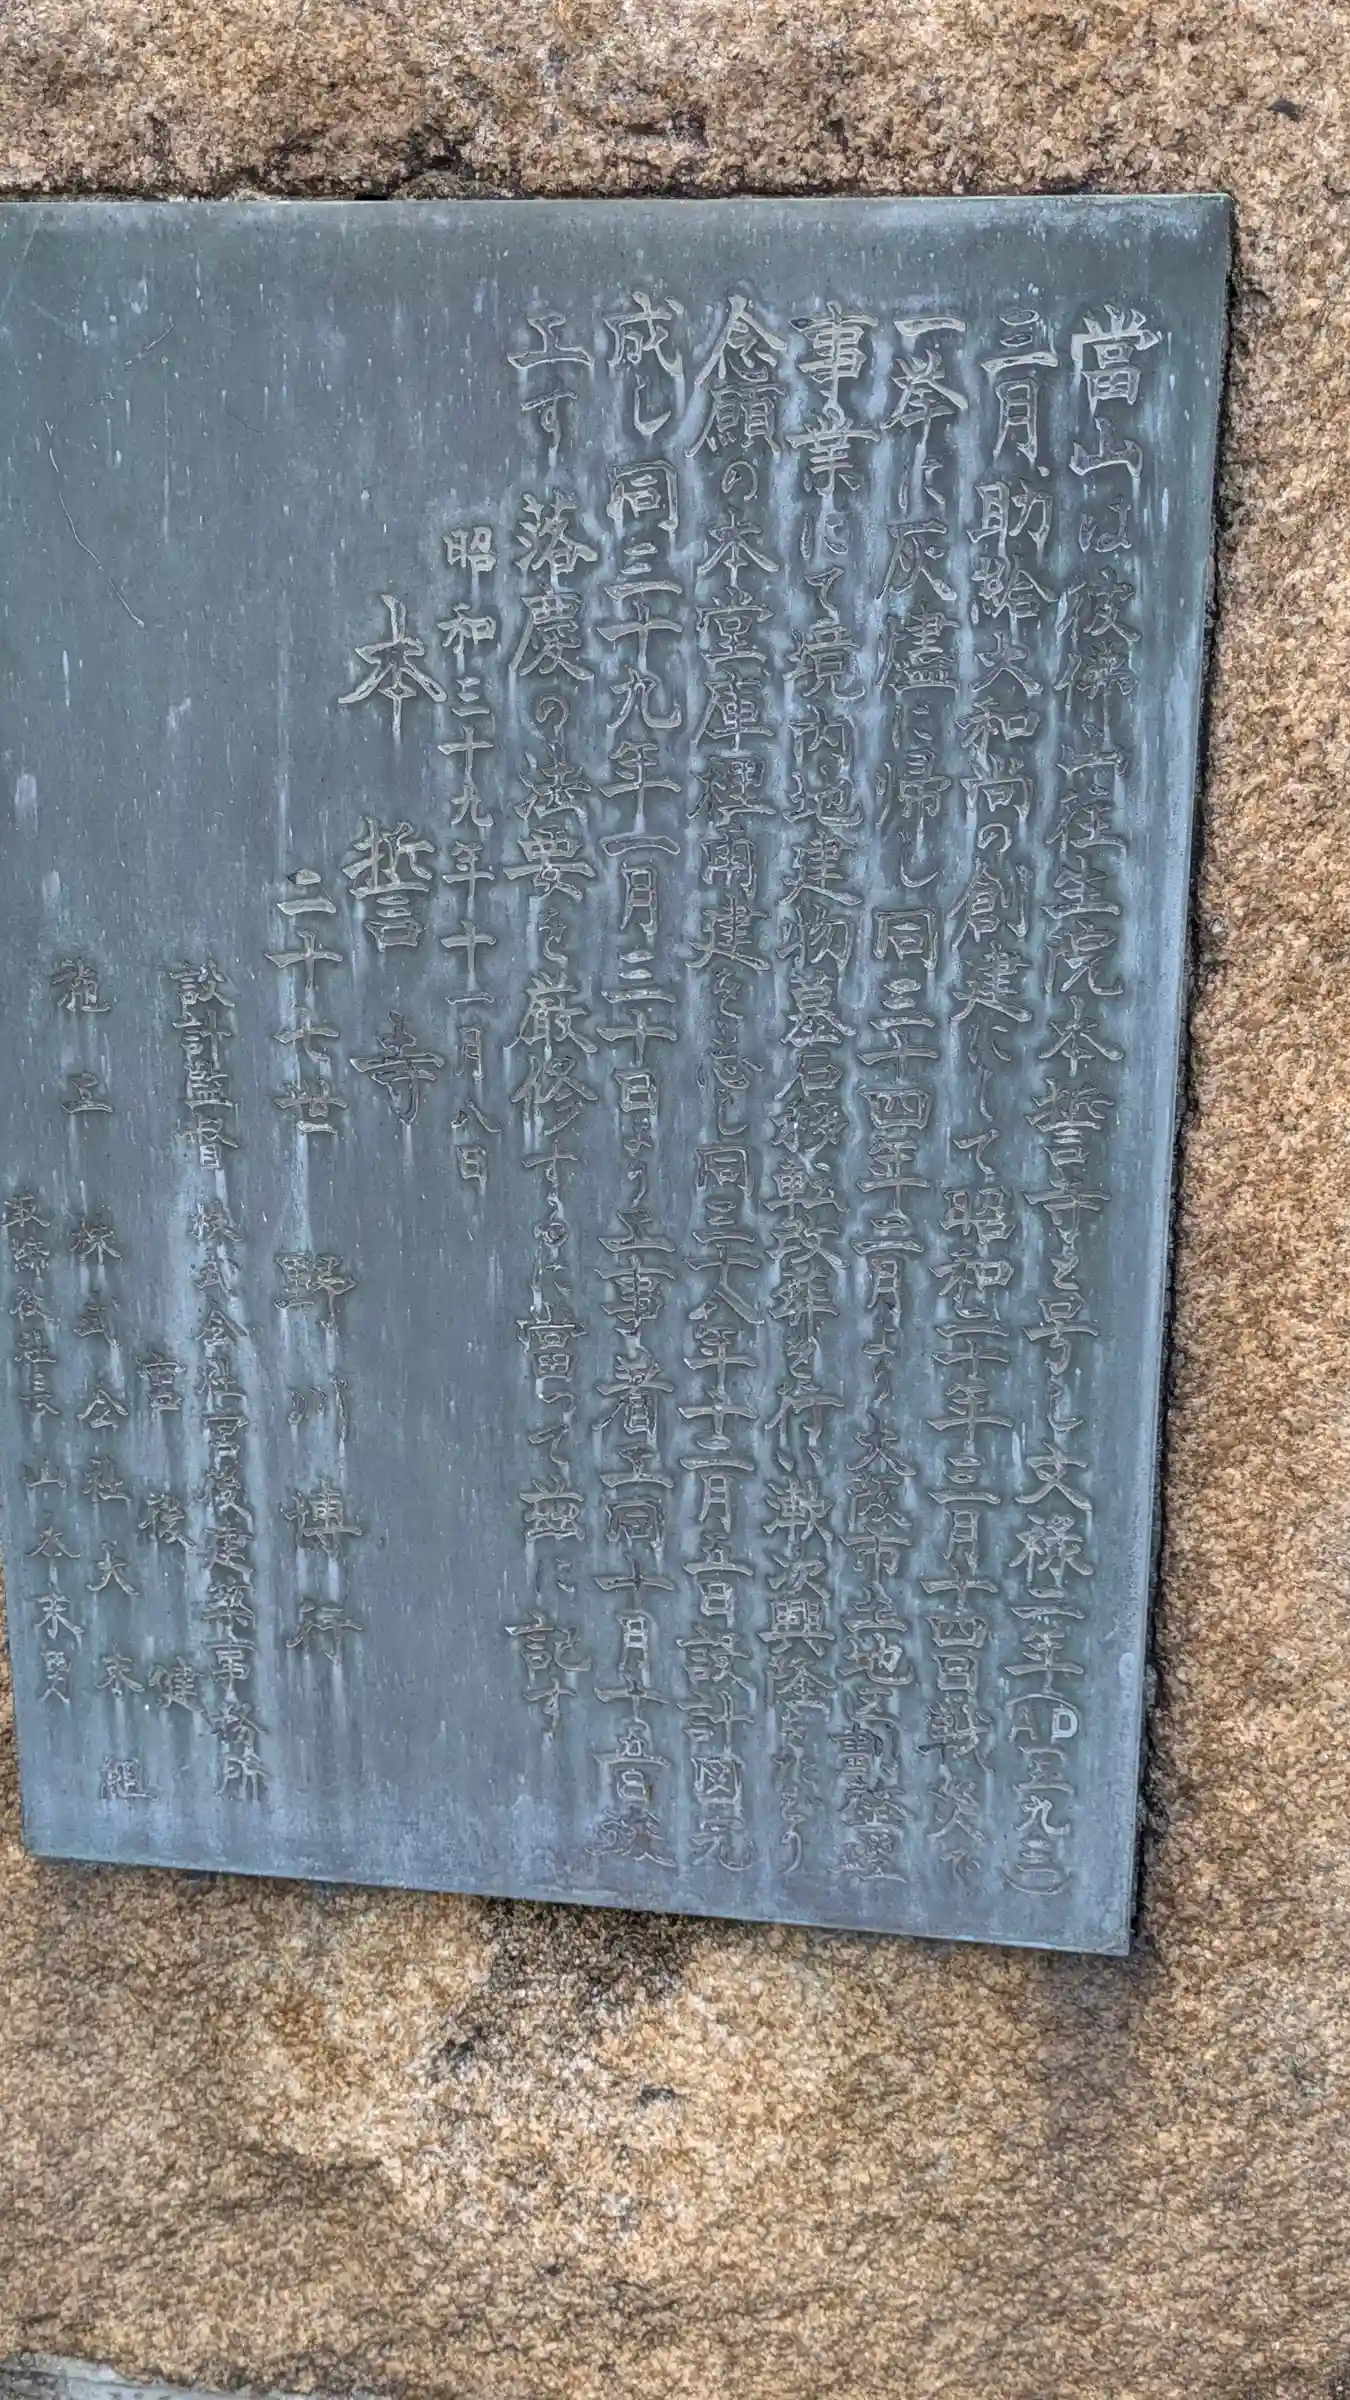 當山は彼佛山往生院本誓寺と号し文禄二年(AD一五九三)
三月、助給大和尚の創建にして昭和二十年三月十四日戦災で
一挙に灰燼に帰し同三十四年二月より大阪市土地区劃整理
事業にて境内地建物墓石移転改葬を行い漸次興隆をたどり
念願の本堂庫裡再建を志し同三十八年十二月五日設計図完
成し同三十九年一月三十日より工事着工同十月十五日竣
工す落慶の法要を厳修するに當って茲に記す
昭和三十九年十一月八日
本誓寺
二十七世 野川博行
設計監督 株式会社宮後建築事務所
宮後 健
施工 株式会社大末組
取締役社長 山本末男